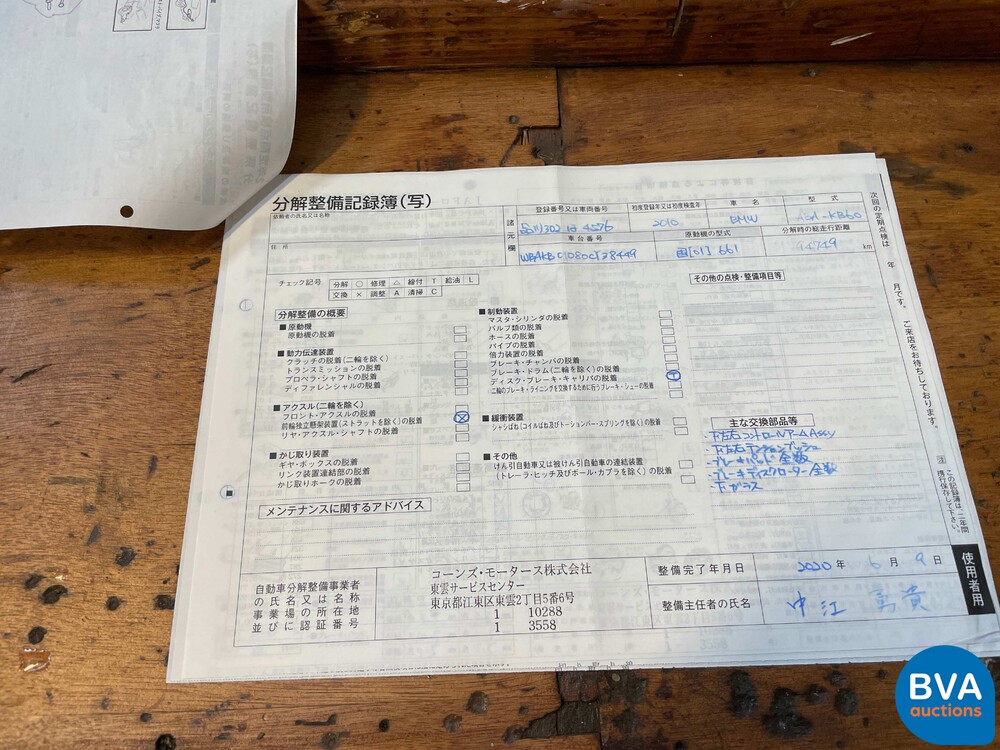 分解整備記録簿(写)
依頼者の氏名又は名称
住所
諸元欄
登録番号又は車両番号
初度登録年又は初度検査年
車名
型式
2010
BMW
車台番号
原動機の型式
分解時の総走行距離
国[01] 661
94749 km
チェック記号
分解 ○ 修理 △ 締付 T 給油 L
交換 × 調整 A 清掃 C
分解整備の概要
■原動機
原動機の脱着
■動力伝達装置
クラッチの脱着(二輪を除く)
トランスミッションの脱着
プロペラ・シャフトの脱着
ディファレンシャルの脱着
■アクスル(二輪を除く)
フロント・アクスルの脱着
前輪独立懸架装置(ストラットを除く)の脱着
リヤ・アクスル・シャフトの脱着
■かじ取り装置
ギヤ・ボックスの脱着
リンク装置連結部の脱着
かじ取りホークの脱着
■制動装置
マスタ・シリンダの脱着
バルブ類の脱着
ホースの脱着
パイプの脱着
倍力装置の脱着
ブレーキ・チャンバの脱着
ブレーキ・ドラム(二輪を除く)の脱着
ディスク・ブレーキ・キャリパの脱着
二輪のブレーキ・ライニングを交換するために行うブレーキ・シューの脱着
■緩衝装置
シャシばね(コイルばね及びトーションバー・スプリングを除く)の脱着
■その他
けん引自動車又は被けん引自動車の連結装置
(トレーラ・ヒッチ及びボール・カプラを除く)の脱着
その他の点検・整備項目等
主な交換部品等
・下左右コントロールアームAssy
・下左右テンションブッシュ
・ブレーキパッド 全数
・ブレーキディスクローター 全数
・下ガラス
メンテナンスに関するアドバイス
自動車分解整備事業者
の氏名又は名称
事業場の所在地
並びに認証番号
コーンズ・モータース株式会社
東雲サービスセンター
東京都江東区東雲2丁目5番6号
1 10288
1 3558
整備完了年月日
2020年 6月 9日
整備主任者の氏名
中江
次回の定期点検は 年 月です。ご来店をお待ちしております。
注 この記録簿は、二年間
携行保存して下さい。
使用者用
BVA
auctions